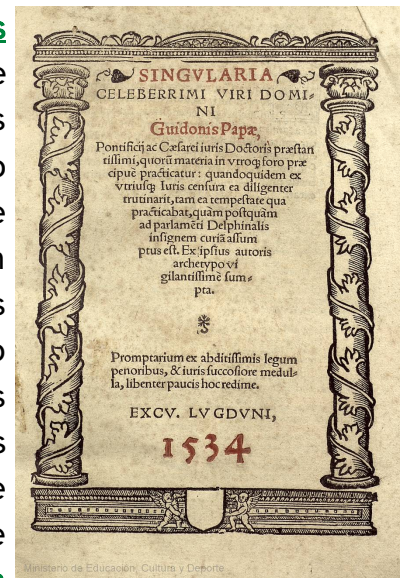 SINGVLARIA
CELEBERRIMI VIRI DOMI-
NI
Guidonis Papæ,
Pontificij ac Cæsarei iuris Doctoris præstan
tissimi, quorū materia in vtroq; foro præ
cipuè practicatur: quandoquidem ex
vtriusq; Iuris censura ea diligenter
trutinarit, tam ea tempestate qua
practicabat, quàm postquàm
ad parlamēti Delphinalis
insignem curiā assum
ptus est. Ex ipsius autoris
archetypo vi
gilantissimè sum-
pta.
Promptarium ex abditissimis legum
penoribus, & iuris succosiore medul-
la, libenter paucis hoc redime.
EXCV. LVGDVNI,
1534
Ministerio de Educación, Cultura y Deporte